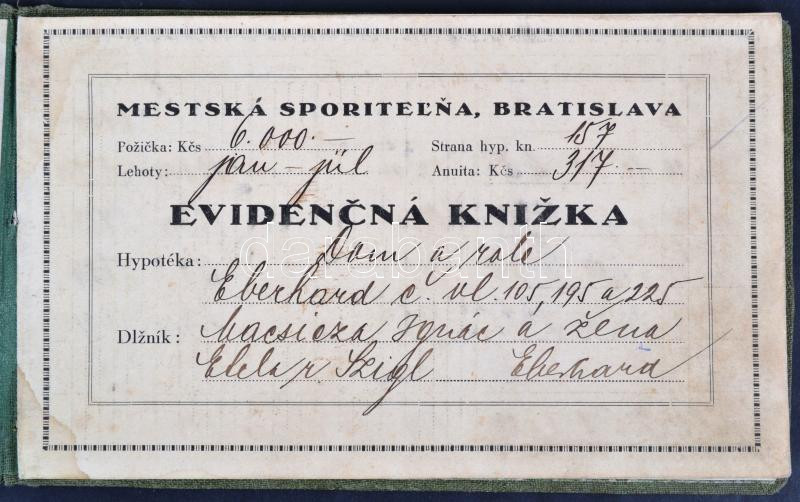 MESTSKÁ SPORITEĽŇA, BRATISLAVA
Požička: Kčs 6.000.— Strana hyp. kn. 157
Lehoty: jan – júl Anuita: Kčs 317.—
EVIDENČNÁ KNIŽKA
Hypotéka: Dom a role
Eberhard č. vl. 105, 195 a 225
Dlžník: Macsicza Ignác a žena
Etela r. Szigl Eberhard
darabanth